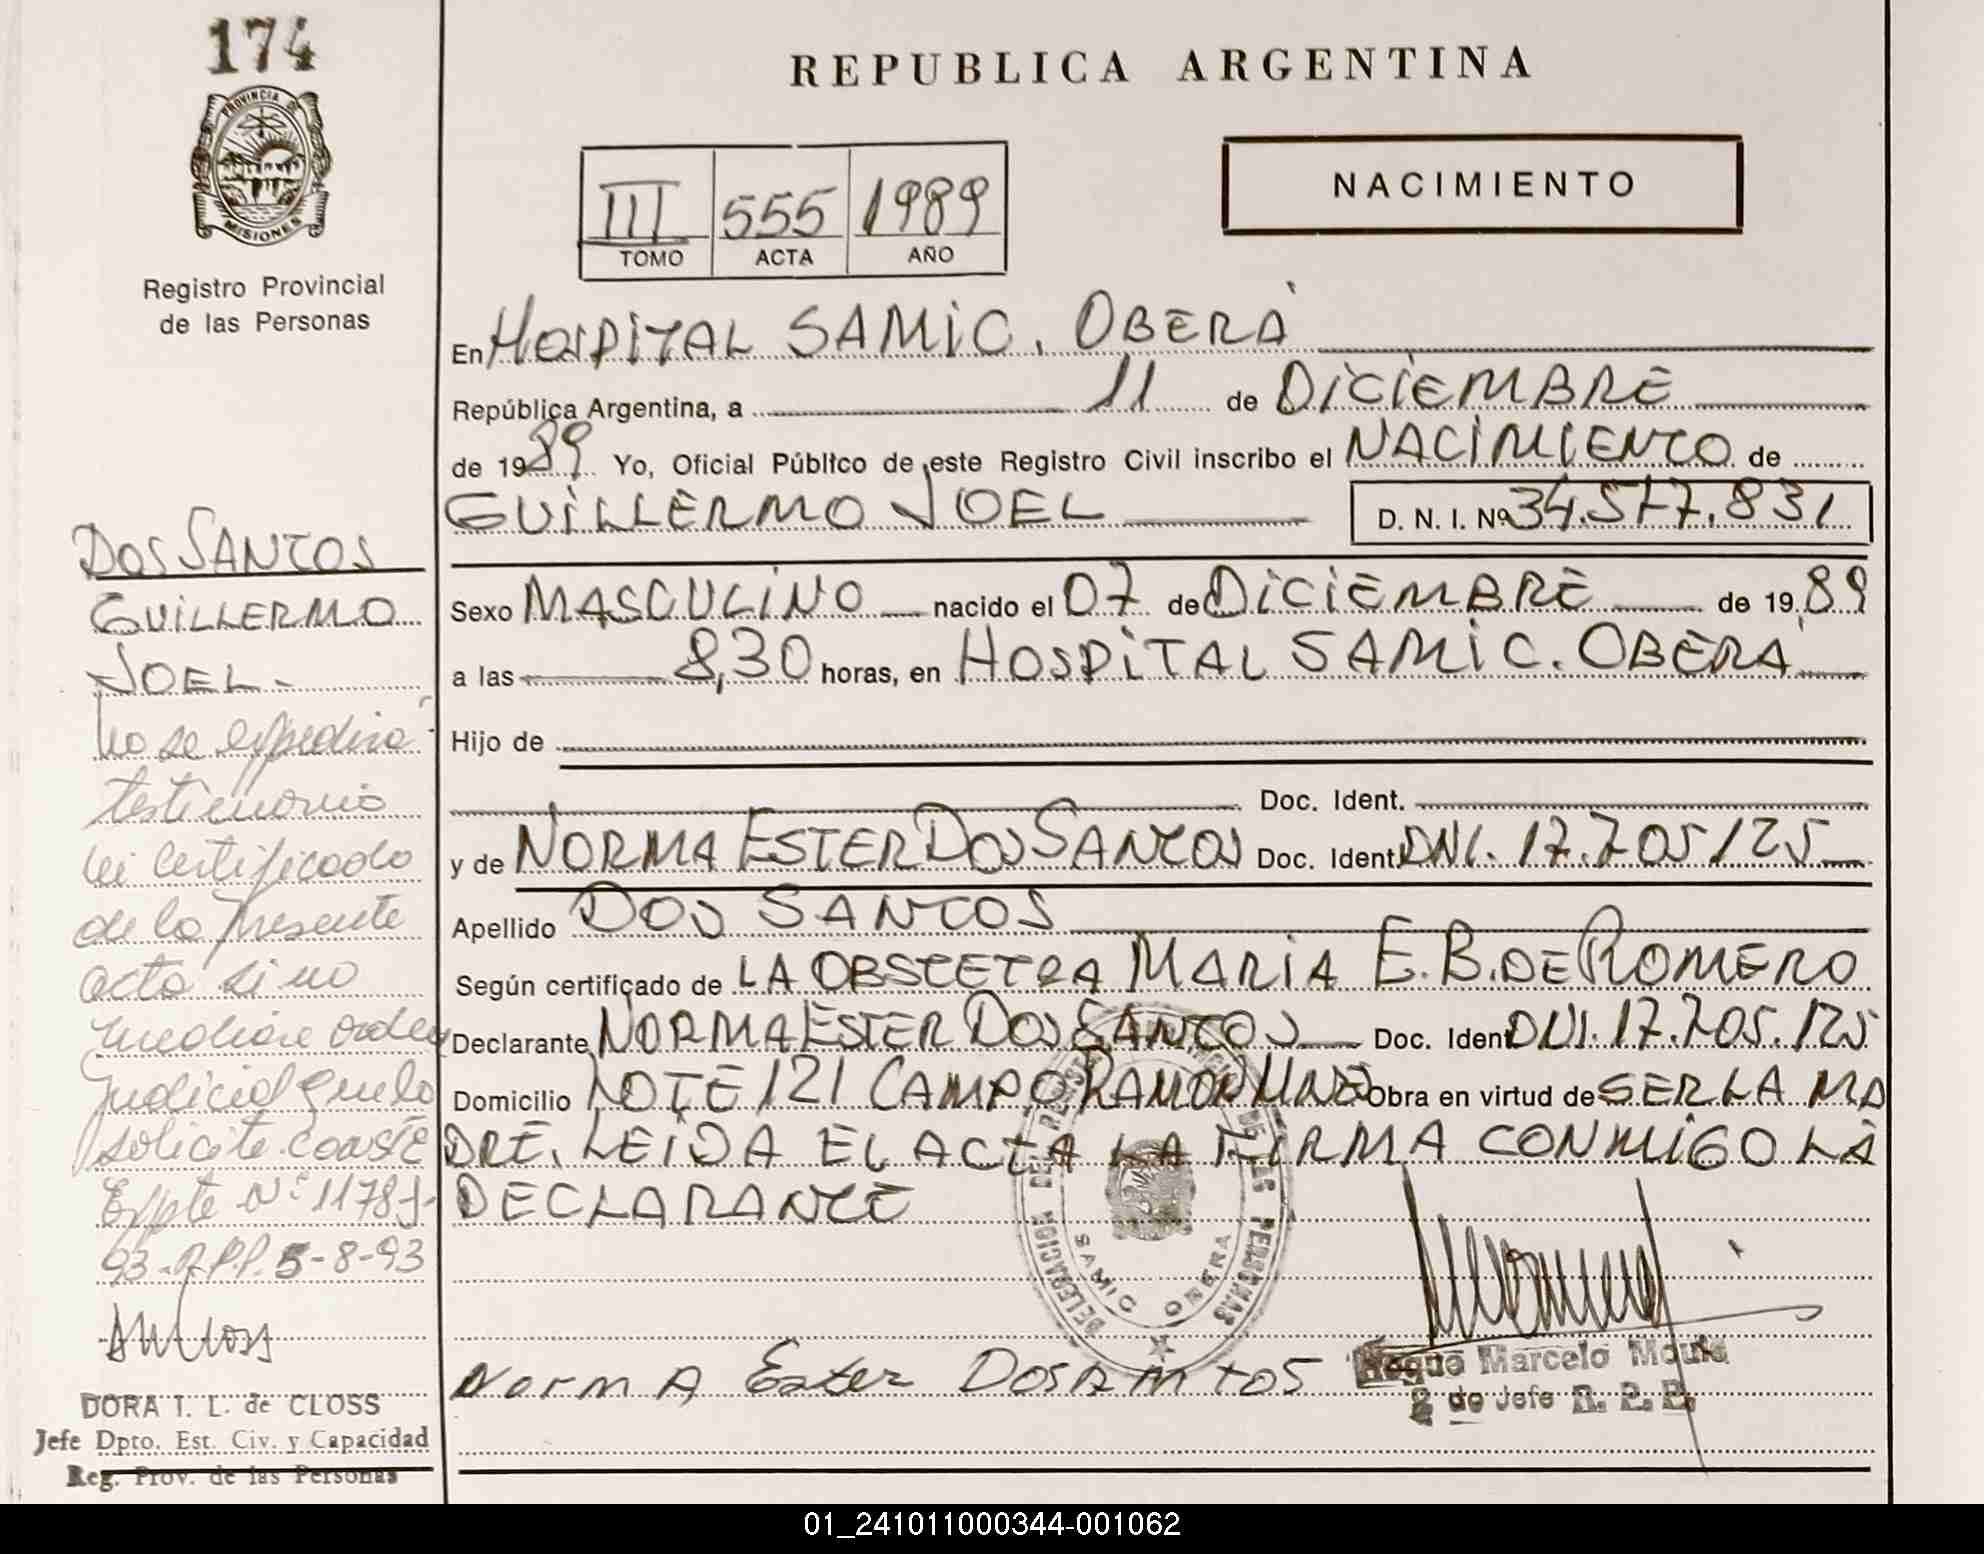 174
PROVINCIA DE
MISIONES
Registro Provincial
de las Personas
DOS SANTOS
GUILLERMO
JOEL.-
No se expedirá
testimonio
ni certificado
de la presente
acta si no
mediare orden
judicial que lo
solicite. Conste
Expte Nº 11789-
93-R.P.P. 5-8-93
DORA T. L. de CLOSS
Jefe Dpto. Est. Civ. y Capacidad
Reg. Prov. de las Personas
REPUBLICA ARGENTINA
III 555 1989
TOMO ACTA AÑO
NACIMIENTO
En HOSPITAL SAMIC. OBERÁ
República Argentina, a 11 de DICIEMBRE
de 1989 Yo, Oficial Público de este Registro Civil inscribo el NACIMIENTO de
GUILLERMO JOEL D. N. I. Nº 34.577.831
Sexo MASCULINO nacido el 07 de DICIEMBRE de 1989
a las 8,30 horas, en HOSPITAL SAMIC. OBERÁ
Hijo de
Doc. Ident.
y de NORMA ESTER DOS SANTOS Doc. Ident. DNI. 17.705125
Apellido DOS SANTOS
Según certificado de LA OBSTETRA MARIA E. B. DE ROMERO
Declarante NORMA ESTER DOS SANTOS Doc. Ident DNI. 17.705.125
Domicilio LOTE 121 CAMPO RAMON UNO Obra en virtud de SER LA MA
DRE. LEIDA EL ACTA LA FIRMA CONMIGO LA
DECLARANTE
DELEGACION DEL REGISTRO DE LAS PERSONAS
SAMIC OBERA
Norma Ester Dosantos
Roque Marcelo
2 do Jefe R. P. P.
01_241011000344-001062